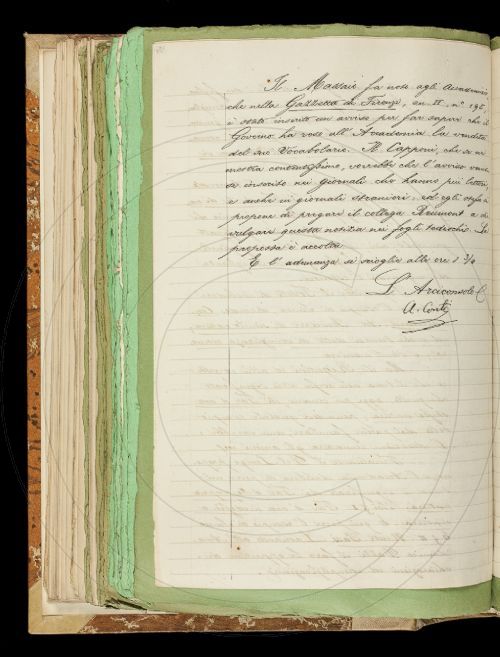 Il Massai fa noto agli Accademici
che nella Gazzetta di Firenze, an. II, n.º 195,
è stato inserito un avviso per far sapere che il
Governo ha reso all'Accademia la vendita
del suo Vocabolario. Il Capponi, che se ne
mostra contentissimo, vorrebbe che l'avviso venis
se inserito nei giornali che hanno più lettori
e anche in giornali stranieri; ed egli stesso si
propone di pregare il collega Reumont a di
vulgare questa notizia nei fogli tedeschi. La
proposta è accolta.
E l'adunanza si scioglie alle ore 1 3/4
L'Arciconsolo
A. Conti